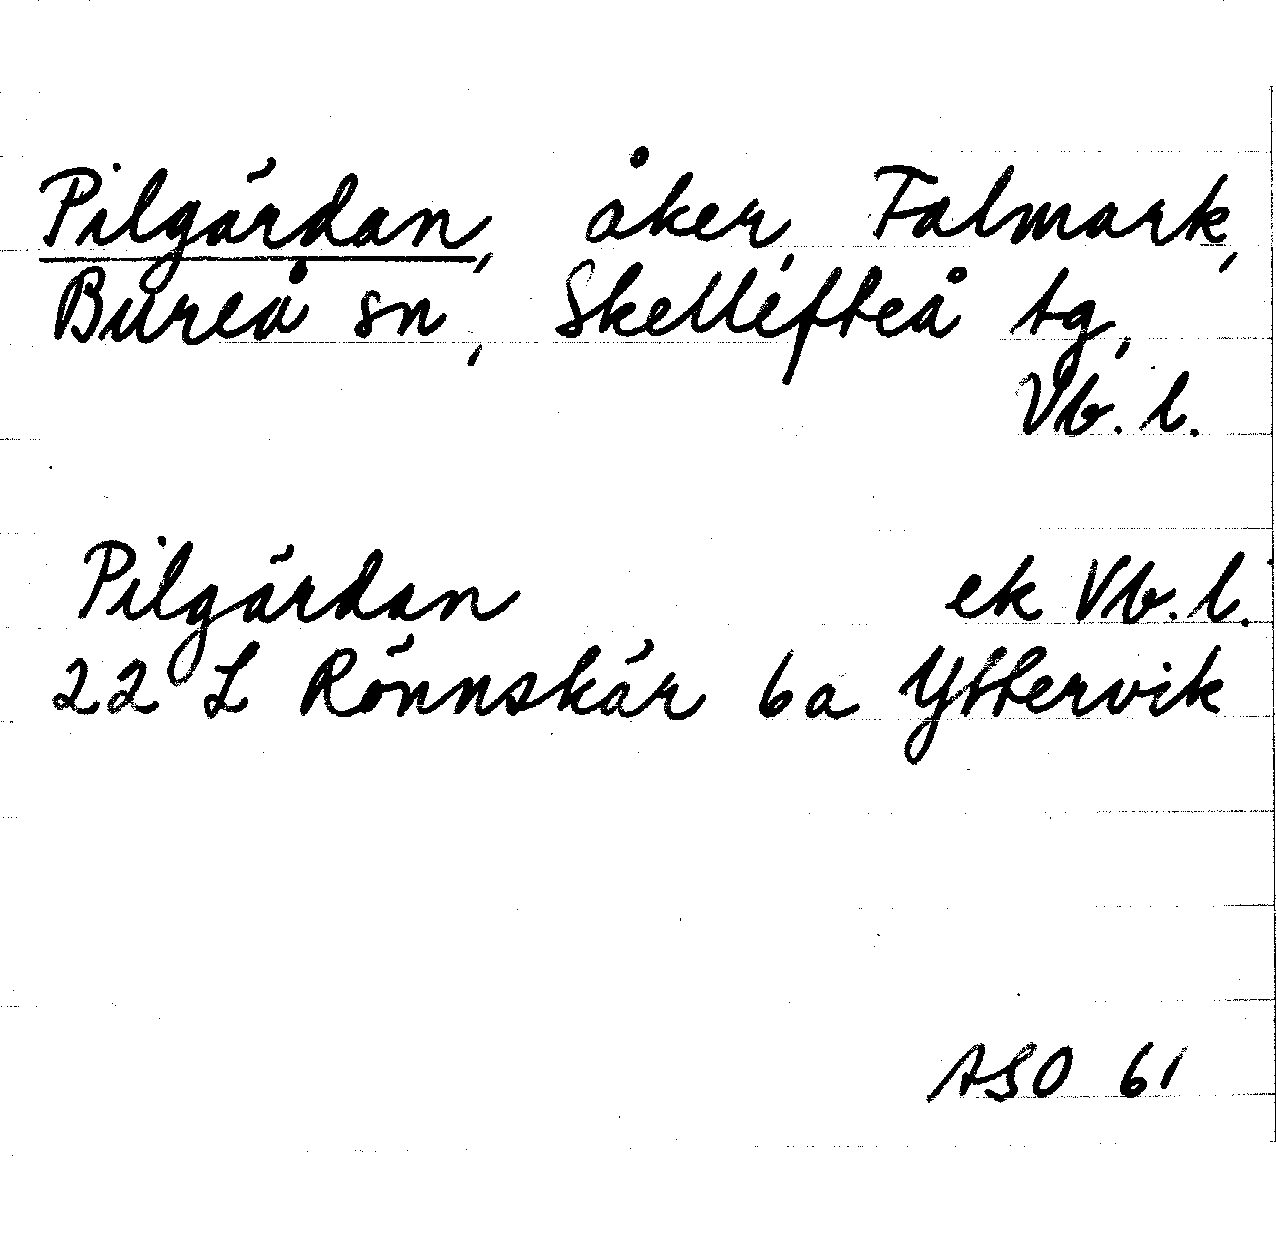 Pilgärdan, åker, Falmark,
Bureå sn, Skellefteå tg,
Vb. l.
Pilgärdan ek Vb. l.
22 L Rönnskär 6a Yttervik
ASO 61